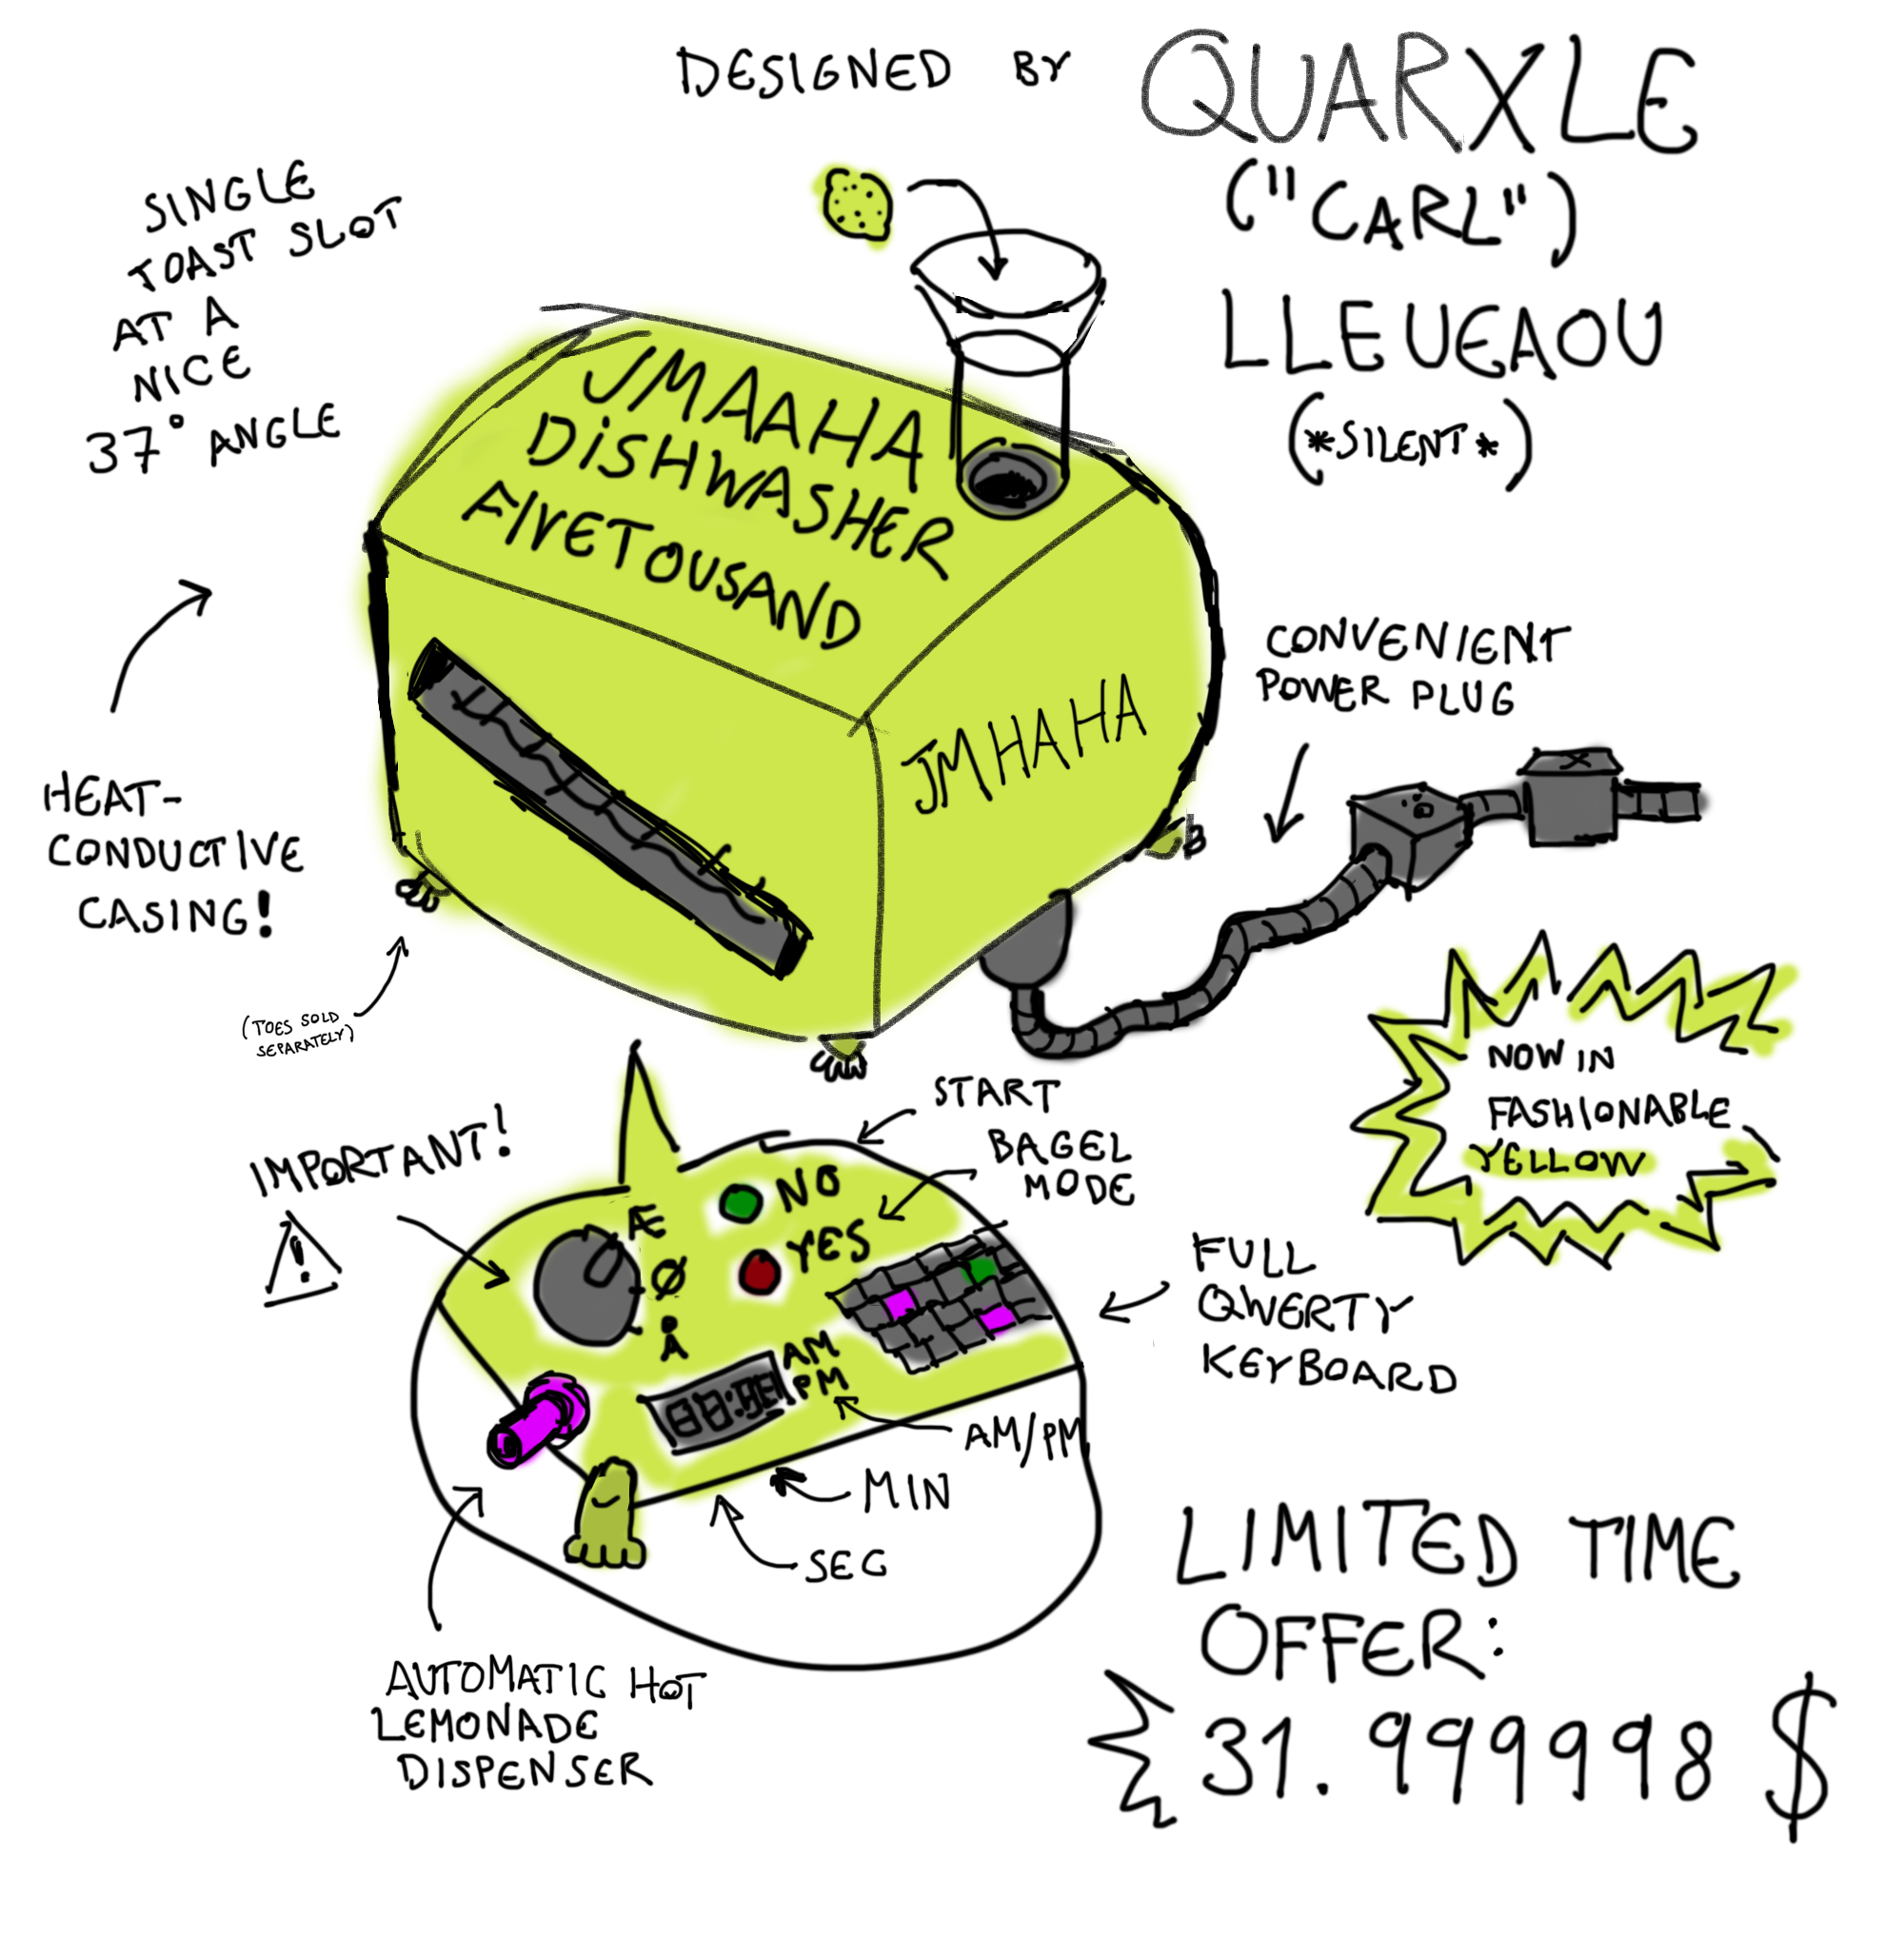 DESIGNED BY QUARXLE
("CARL")
LLEUEAOU
(*SILENT*)
SINGLE
TOAST SLOT
AT A
NICE
37° ANGLE
JMAAHA
DiSHWASHER
FIVETOUSAND
JMHAHA
CONVENIENT
POWER PLUG
HEAT-
CONDUCTIVE
CASING!
(TOES SOLD
SEPARATELY)
NOW IN
FASHIONABLE
YELLOW
START
BAGEL
MODE
IMPORTANT!
!
NO
YES
Æ
Ø
Å
AM
PM
88:88
FULL
QWERTY
KEYBOARD
AM/PM
MIN
SEG
AUTOMATIC HOT
LEMONADE
DISPENSER
LIMITED TIME
OFFER:
31.999998 $